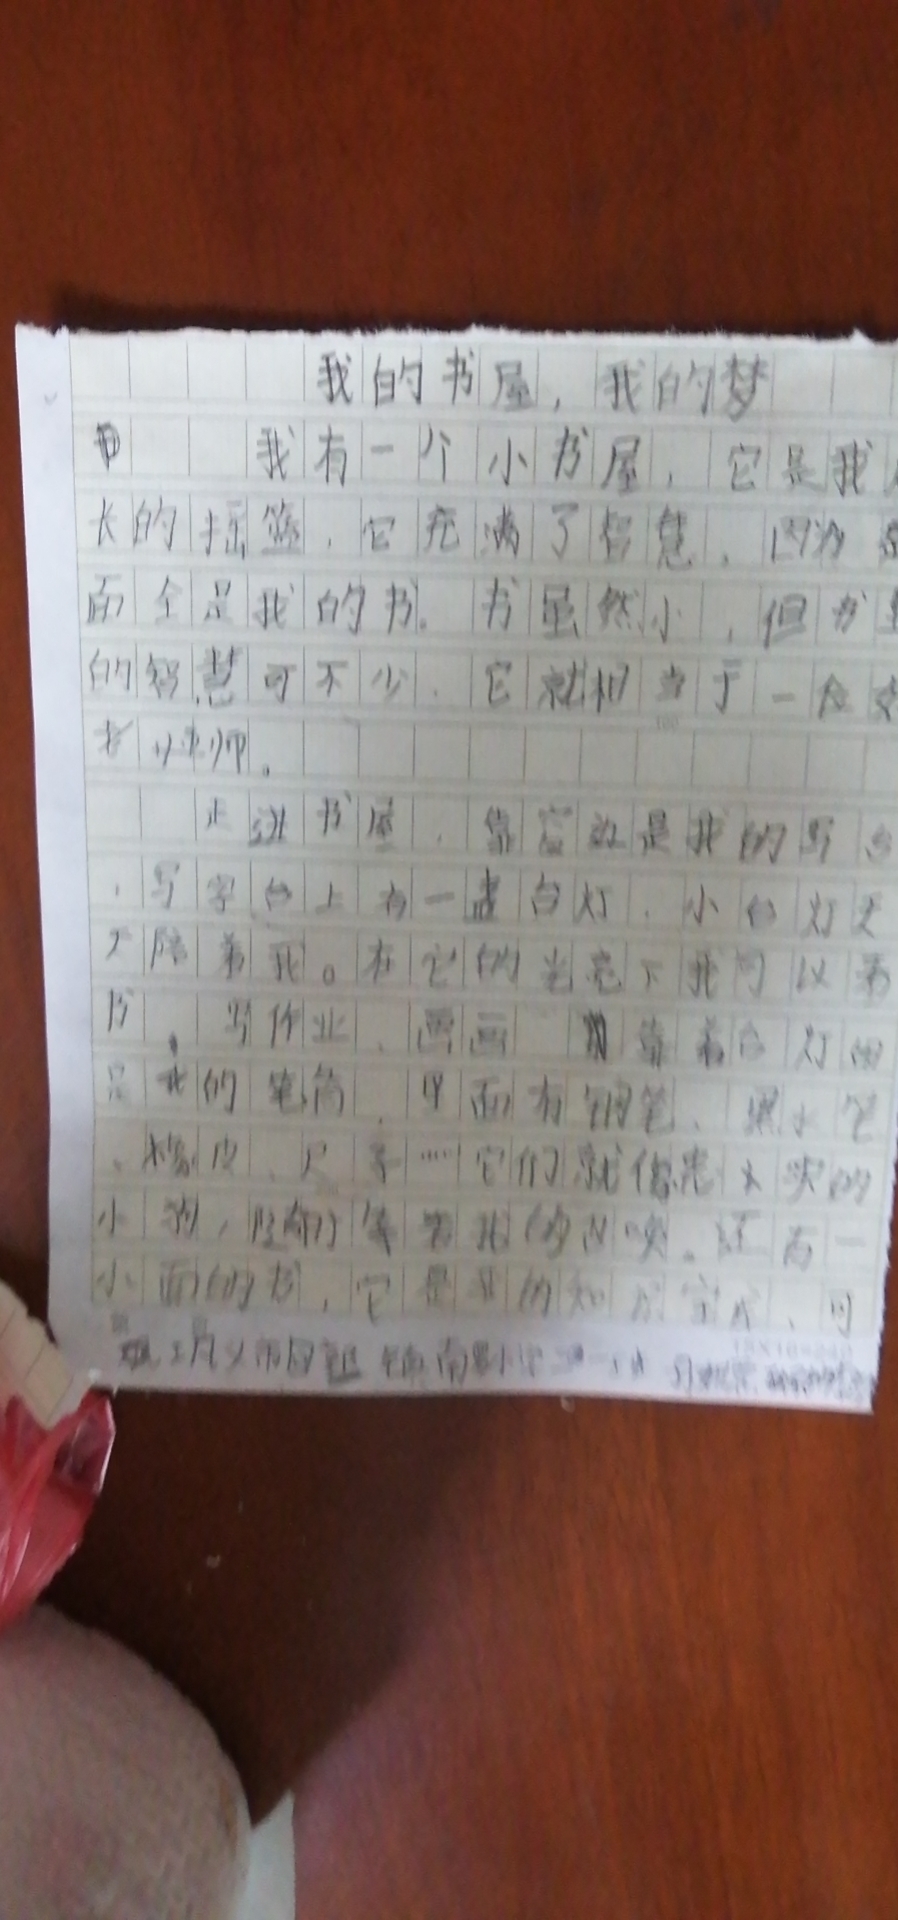 我的书屋，我的梦
我有一个小书屋，它是我
长的摇篮，它充满了智慧，因为
面全是我的书。书虽然小，但书里
的智慧可不少，它就相当于一位
老师。
走进书屋，靠窗就是我的写
，写字台上有一盏台灯，小台灯天
天陪着我。在它的光亮下我可以看
书，写作业、画画 靠着台灯的
是我的笔筒，里面有钢笔、黑水笔
、橡皮、尺子……它们就像忠实的
小 ，随时等着我的召唤。还有一
小面的书，它是我的知识宝 ，可